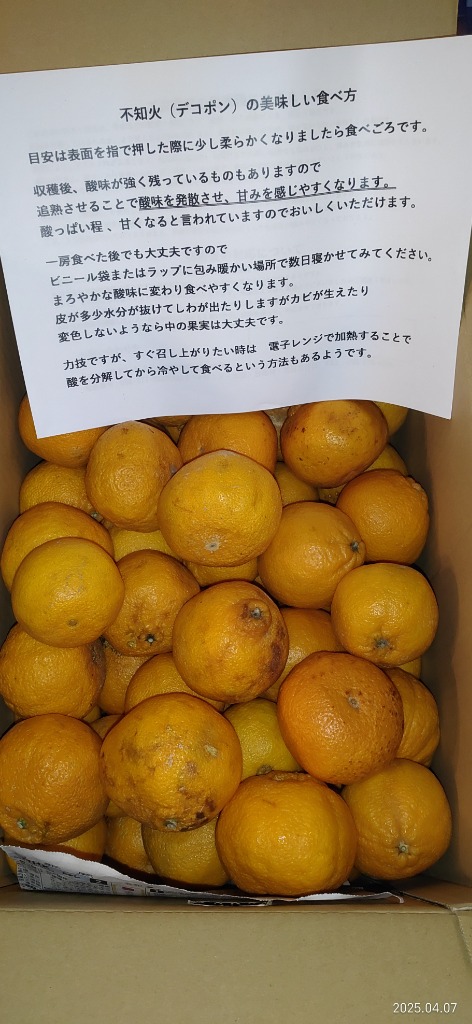 不知火（デコポン）の美味しい食べ方
目安は表面を指で押した際に少し柔らかくなりましたら食べごろです。
収穫後、酸味が強く残っているものもありますので
追熟させることで酸味を発散させ、甘みを感じやすくなります。
酸っぱい程 、甘くなると言われていますのでおいしくいただけます。
一房食べた後でも大丈夫ですので
ビニール袋またはラップに包み暖かい場所で数日寝かせてみてください。
まろやかな酸味に変わり食べやすくなります。
皮が多少水分が抜けてしわが出たりしますがカビが生えたり
変色しないようなら中の果実は大丈夫です。
力技ですが、すぐ召し上がりたい時は　電子レンジで加熱することで
酸を分解してから冷やして食べるという方法もあるようです。
2025.04.07